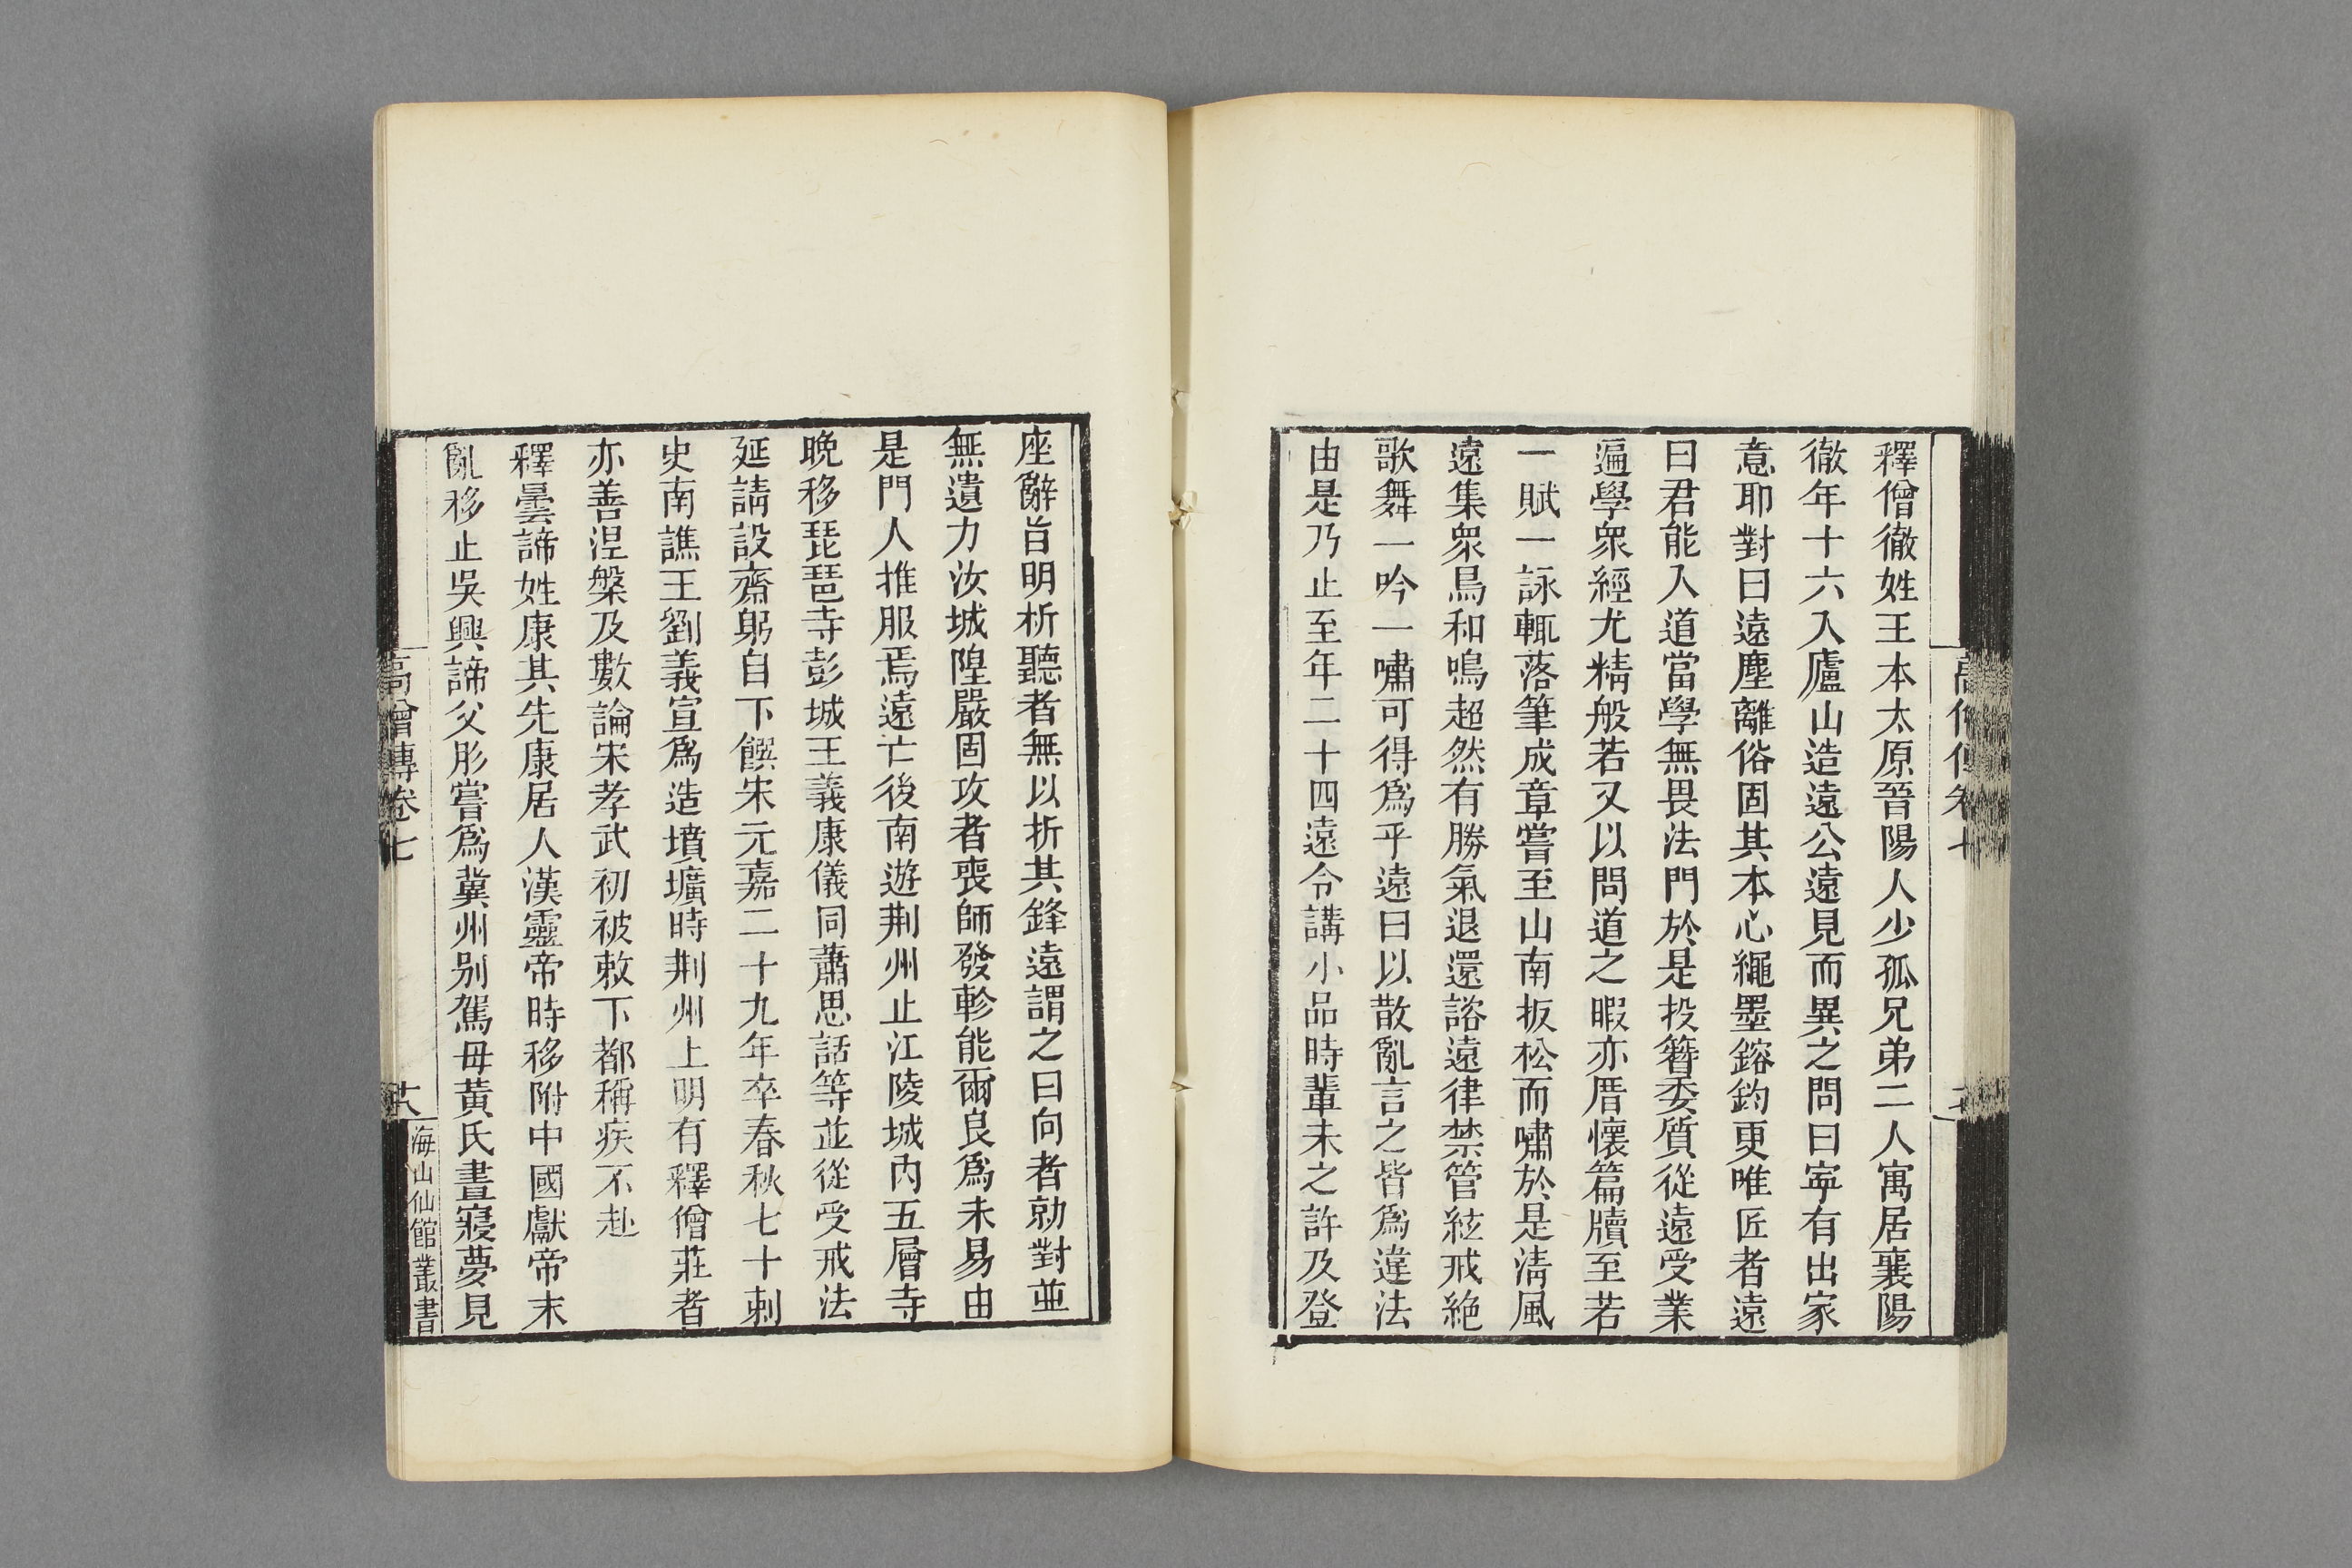 釋僧徹姓王本太原晉陽人少孤兄弟二人寓居襄陽
徹年十六入廬山造遠公遠見而異之問曰寧有出家
意耶對曰遠塵離俗固其本心繩墨鎔鈞更唯匠者遠
曰君能入道當學無畏法門於是投簪委質從遠受業
遍學衆經尤精般若又以問道之暇亦厝懷篇牘至若
一賦一詠輒落筆成章嘗至山南扳松而嘯於是淸風
遠集衆鳥和鳴超然有勝氣退還諮遠律禁管絃戒絕
歌舞一吟一嘯可得爲乎遠曰以散亂言之皆爲違法
由是乃止至年二十四遠令講小品時輩未之許及登
座辭旨明析聽者無以折其鋒遠謂之曰向者勍對並
無遺力汝城隍嚴固攻者喪師發軫能爾良爲未易由
是門人推服焉遠亡後南遊荆州止江陵城內五層寺
晚移琵琶寺彭城王義康儀同蕭思話等並從受戒法
延請設齋躬自下饌宋元嘉二十九年卒春秋七十刺
史南譙王劉義宣爲造墳壙時荆州上明有釋僧莊者
亦善涅槃及數論宋孝武初被敕下都稱疾不赴
釋曇諦姓康其先康居人漢靈帝時移附中國獻帝末
亂移止吳興諦父肜嘗爲冀州别駕母黃氏晝寢夢見
高僧傳卷七
海山仙館叢書